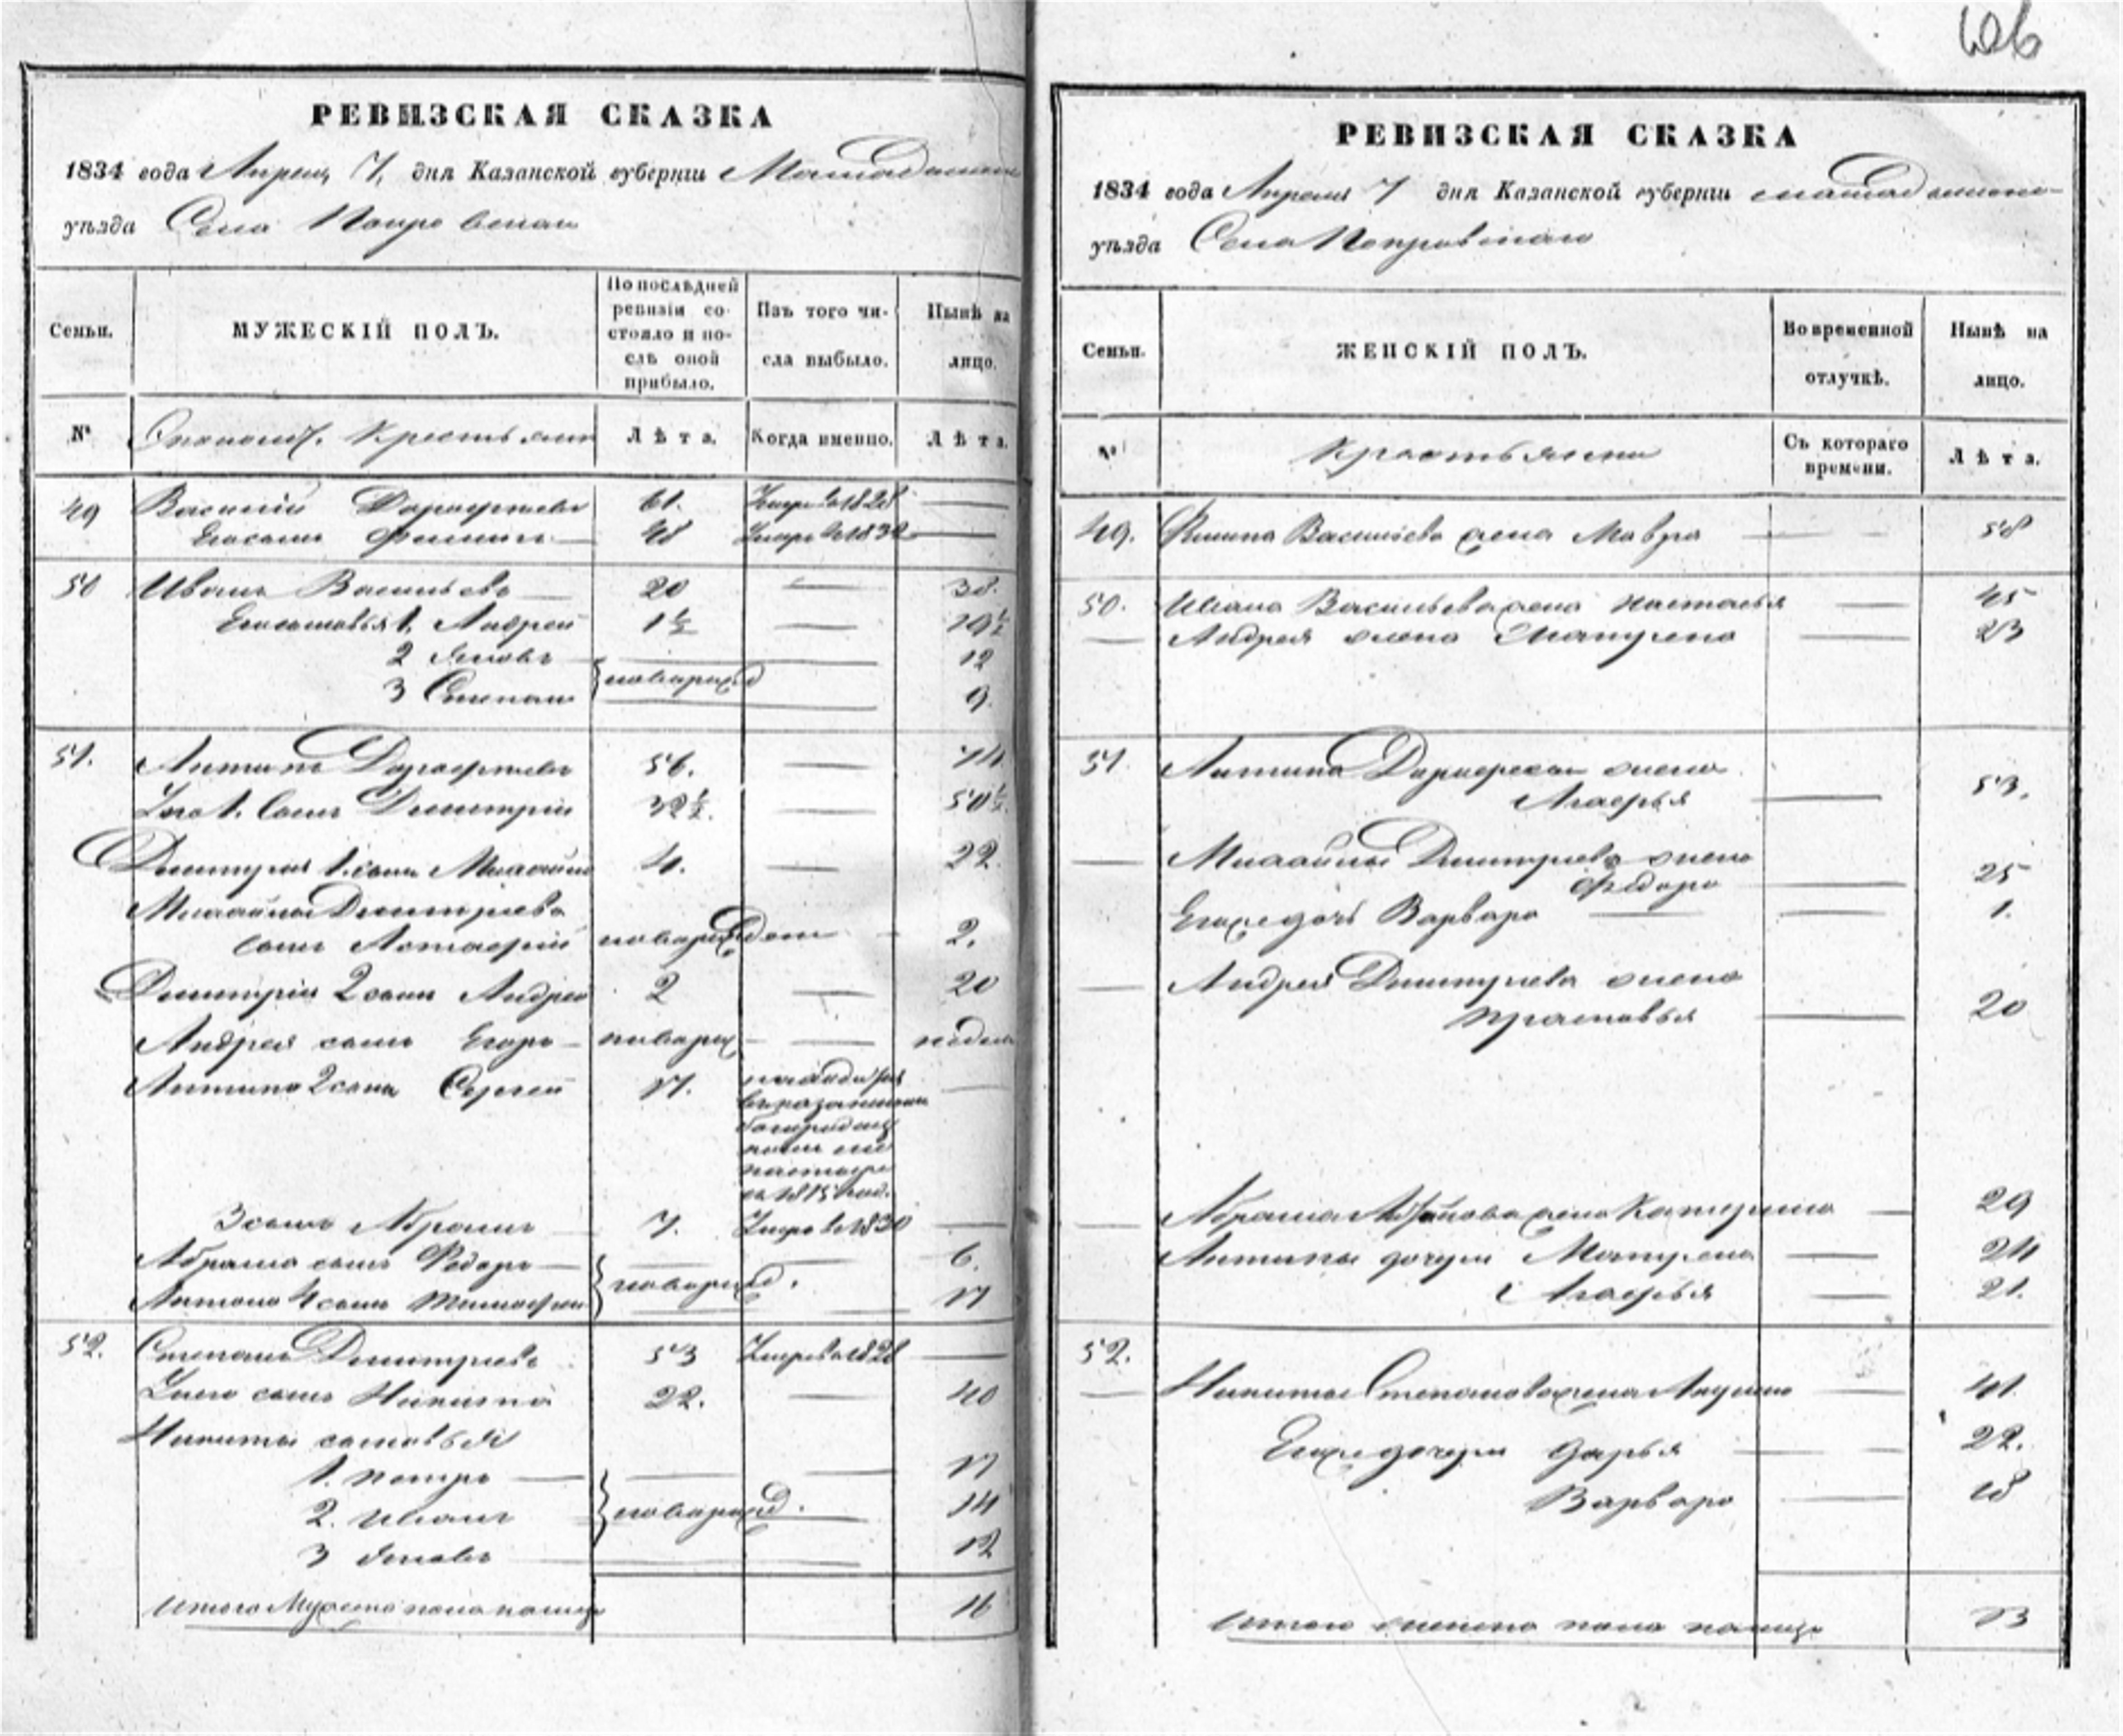 РЕВИЗСКАЯ СКАЗКА
1834 года Апреля 7, дня Казанской губернии
уѣзда Села Покровскаго
Семьи.
МУЖЕСКІЙ ПОЛЪ.
По послѣдней
ревизіи со-
стояло и по-
слѣ оной
прибыло.
Изъ того чи-
сла выбыло.
Нынѣ на
лицо.
№
Економич. Крестьянъ
Лѣта.
Когда именно.
Лѣта.
49 Василій Дорофеевъ 61. Умре в 1828
Его сынъ Филипъ 48 Умре в 1832
50 Иванъ Васильевъ 20 38.
Его сыновья 1. Андрей 1½ 19½
2 Яковъ 12
новорожд
3 Степанъ 9.
51. Антипъ Дорофеевъ 56. 74
У него 1. сынъ Дмитрій 32½. 50½.
Дмитрія 1. сынъ Михайла 4. 22.
Михайлы Дмитріева
сынъ новорожден 2.
Дмитрія 2 сынъ Андрей 2 20
Андрея сынъ Егоръ новорож
Антипа 2 сынъ Сергей 17.
3 сынъ Абрамъ 7. Умре в 1830
Абрама сынъ Федоръ 6.
новорожд.
Антипа 4 сынъ Тимофей 17
52. Степанъ Дмитріевъ 53 Умре в 1828
У него сынъ Никита 22. 40
Никиты сыновья
1. Петръ 17
2. Иванъ новорожд. 14
3 Яковъ 12
Итого Мужеска пола налицо 16
РЕВИЗСКАЯ СКАЗКА
1834 года Апреля 7 дня Казанской губернии
уѣзда Села Покровскаго
Семьи.
ЖЕНСКІЙ ПОЛЪ.
Во временной
отлучкѣ.
Нынѣ на
лицо.
№
Крестьянки
Съ котораго
времени.
Лѣта.
49. Филипа Васильева жена Мавра 58
50. Ивана Васильева жена Настасья 45
Андрея жена Матрена 23
51. Антипа Дорофеева жена
Агафья 53.
Михайлы Дмитриева жена
Федора 25
Ево же дочь Варвара 1.
Андрея Дмитриева жена
Прасковья 20
Абрама жена Катерина 29
Антипы дочери Матрена 24
Агафья 21.
52.
Никиты Степанова жена 41.
Ево же дочери Дарья 22.
Варвара 18
Итого женска пола налицо 13